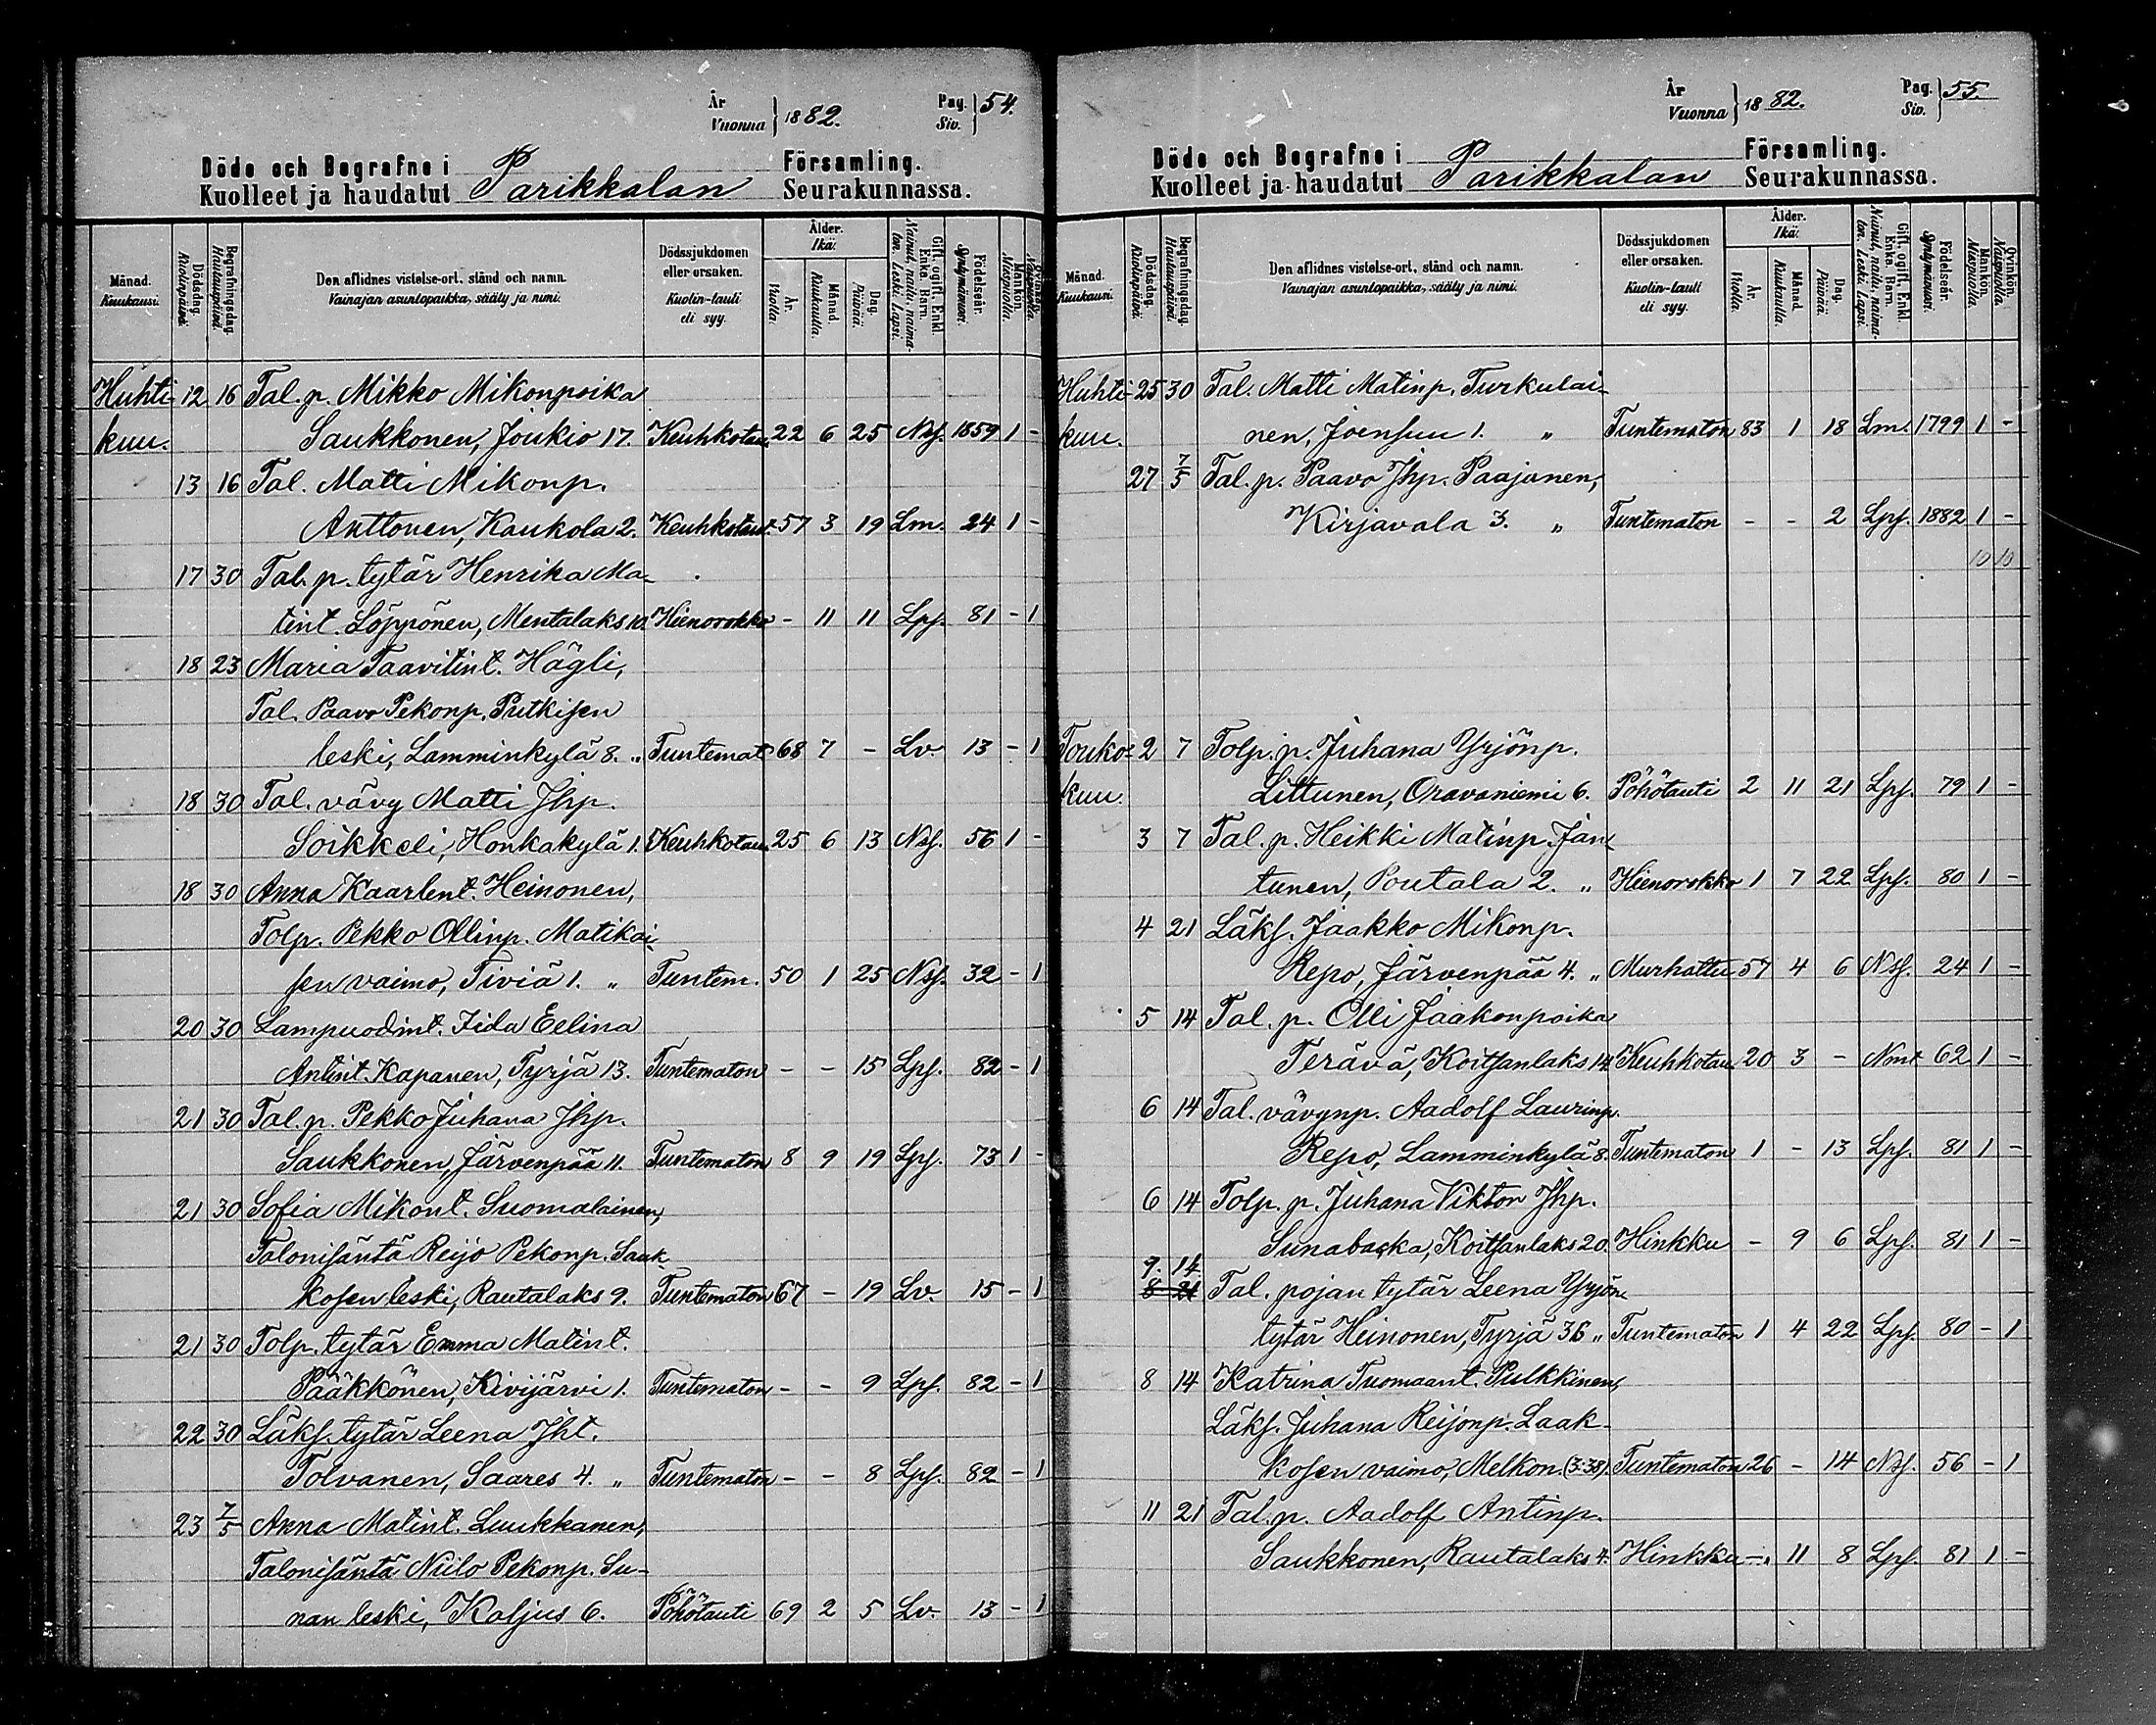 År
Vuonna } 1882.
Pag.
Siv. } 54.
Döde och Begrafne i Församling.
Kuolleet ja haudatut Parikkalan Seurakunnassa.
Månad. Kuukausi.
Dödsdag. Kuolinpäivä.
Begrafningsdag. Hautauspäivä.
Den aflidnes vistelse-ort, stånd och namn.
Vainajan asuntopaikka, sääty ja nimi.
Dödssjukdomen eller orsaken.
Kuolin-tauti eli syy.
Ålder. Ikä.
År. Vuotta.
Månad. Kuukautta.
Dag. Päivää.
Gift, ogift, Enkl. Enka, Barn.
Nainut, naitu, naimaton, Leski, Lapsi.
Födelseår. Syntymävuosi.
Mankön. Miespuolia.
Qvinkön. Naispuolia.
Huhti- 12 16 Tal. p. Mikko Mikonpoika
kuu. Saukkonen, Joukio 17. Keuhkotau. 22 6 25 Nsf. 1859 1 -
13 16 Tal. Matti Mikonp.
Anttonen, Kaukola 2. Keuhkotaut. 57 3 19 Lm. 24 1 -
17 30 Tal. p. tytär Henrika Ma-
tint. Löppönen, Mentalaks 10. Hienorokko - 11 11 Lpf. 81 - 1
18 23 Maria Taavitint. Hägli,
Tal. Paavo Pekonp. Putkisen
leski, Lamminkylä 8. „ Tuntemat. 68 7 - Lv. 13 - 1
18 30 Tal. vävy Matti Jhp.
Soikkeli, Honkakylä 1. Keuhkotau. 25 6 13 Nsf. 56 1 -
18 30 Anna Kaarlent. Heinonen,
Tolp. Pekko Ollinp. Matikai-
sen vaimo, Tiviä 1. „ Tuntem. 50 1 25 Nsf. 32 - 1
20 30 Lampuodint. Iida Eelina
Antint. Kapanen, Tyrjä 13. Tuntematon - - 15 Lpf. 82 - 1
21 30 Tal. p. Pekko Juhana Jhp.
Saukkonen, Järvenpää 11. Tuntematon 8 9 19 Lpf. 73 1 -
21 30 Sofia Mikont. Suomalainen,
Talonisäntä Reijo Pekonp. Sauk-
kosen leski, Rautalaks 9. Tuntematon 67 - 19 Lv. 15 - 1
21 30 Tolp. tytär Emma Matint.
Pääkkönen, Kivijärvi 1. Tuntematon - - 9 Lpf. 82 - 1
22 30 Läks. tytär Leena Jht.
Tolvanen, Saares 4. „ Tuntematon - - 8 Lpf. 82 - 1
23 7/5 Anna Matint. Luukkanen,
Talonisäntä Niilo Pekonp. Su-
nan leski, Koljus 6. Pöhötauti 69 2 5 Lv. 13 - 1
År
Vuonna } 1882.
Pag.
Siv. } 55.
Döde och Begrafne i Församling.
Kuolleet ja haudatut Parikkalan Seurakunnassa.
Månad. Kuukausi.
Dödsdag. Kuolinpäivä.
Begrafningsdag. Hautauspäivä.
Den aflidnes vistelse-ort, stånd och namn.
Vainajan asuntopaikka, sääty ja nimi.
Dödssjukdomen eller orsaken.
Kuolin-tauti eli syy.
Ålder. Ikä.
År. Vuotta.
Månad. Kuukautta.
Dag. Päivää.
Gift, ogift, Enkl. Enka, Barn.
Nainut, naitu, naimaton, Leski, Lapsi.
Födelseår. Syntymävuosi.
Mankön. Miespuolia.
Qvinkön. Naispuolia.
Huhti- 25 30 Tal. Matti Matinp. Turkulai-
kuu. nen, Joensuu 1. „ Tuntematon 83 1 18 Lm. 1799 1 -
27 7/5 Tal. p. Paavo Jhp. Paajanen,
Kirjavala 3. „ Tuntematon - - 2 Lpf. 1882 1 -
10 10
Touko- 2 7 Tolp. p. Juhana Yrjönp.
kuu. Littunen, Oravaniemi 6. Pöhötauti 2 11 21 Lpf. 79 1 -
3 7 Tal. p. Heikki Matinp. Jan-
tunen, Poutala 2. „ Hienorokko 1 7 22 Lpf. 80 1 -
4 21 Läks. Jaakko Mikonp.
Repo, Järvenpää 4. „ Murhattu 57 4 6 Nsf. 24 1 -
5 14 Tal. p. Olli Jaakonpoika
Terävä, Koitsanlaks 14. Keuhkotau. 20 3 - Nmt 62 1 -
6 14 Tal. vävynp. Aadolf Laurinp.
Repo, Lamminkylä 8. Tuntematon 1 - 13 Lpf. 81 1 -
6 14 Tolp. p. Juhana Viktor Jhp.
Sunabacka, Koitsanlaks 20. Hinkku - 9 6 Lpf. 81 1 -
9. 14
8 21 Tal. pojan tytär Leena Yrjön-
tytär Heinonen, Tyrjä 36 „ Tuntematon 1 4 22 Lpf. 80 - 1
8 14 Katrina Tuomaant. Pulkkinen,
Läks. Juhana Reijonp. Laak-
kosen vaimo, Melkon. (3:38). Tuntematon 26 - 14 Nsf. 56 - 1
11 21 Tal. p. Aadolf Antinp.
Saukkonen, Rautalaks 4. Hinkku - 11 8 Lpf. 81 1 -